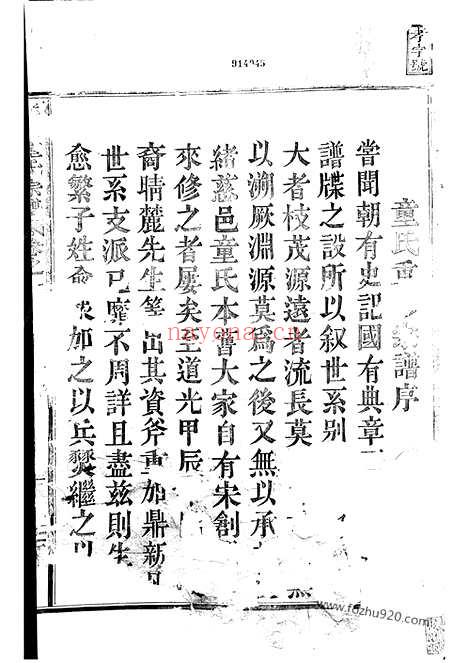 孝字號
914945
童氏重 家譜序
嘗聞朝有史記國有典章
譜牒之設所以叙世系别
大者枝茂源遠者流長莫
以溯厥淵源莫爲之後又無以承
緒慈邑童氏本皆大家自有宋創
來修之者屡矣至道光甲辰
裔晴麓先生等出其資斧重加鼎新
世系支派已靡不周詳且盡兹則生
愈繁子姓 加之以兵燹繼之
nayona.cn
www.fozhu920.com